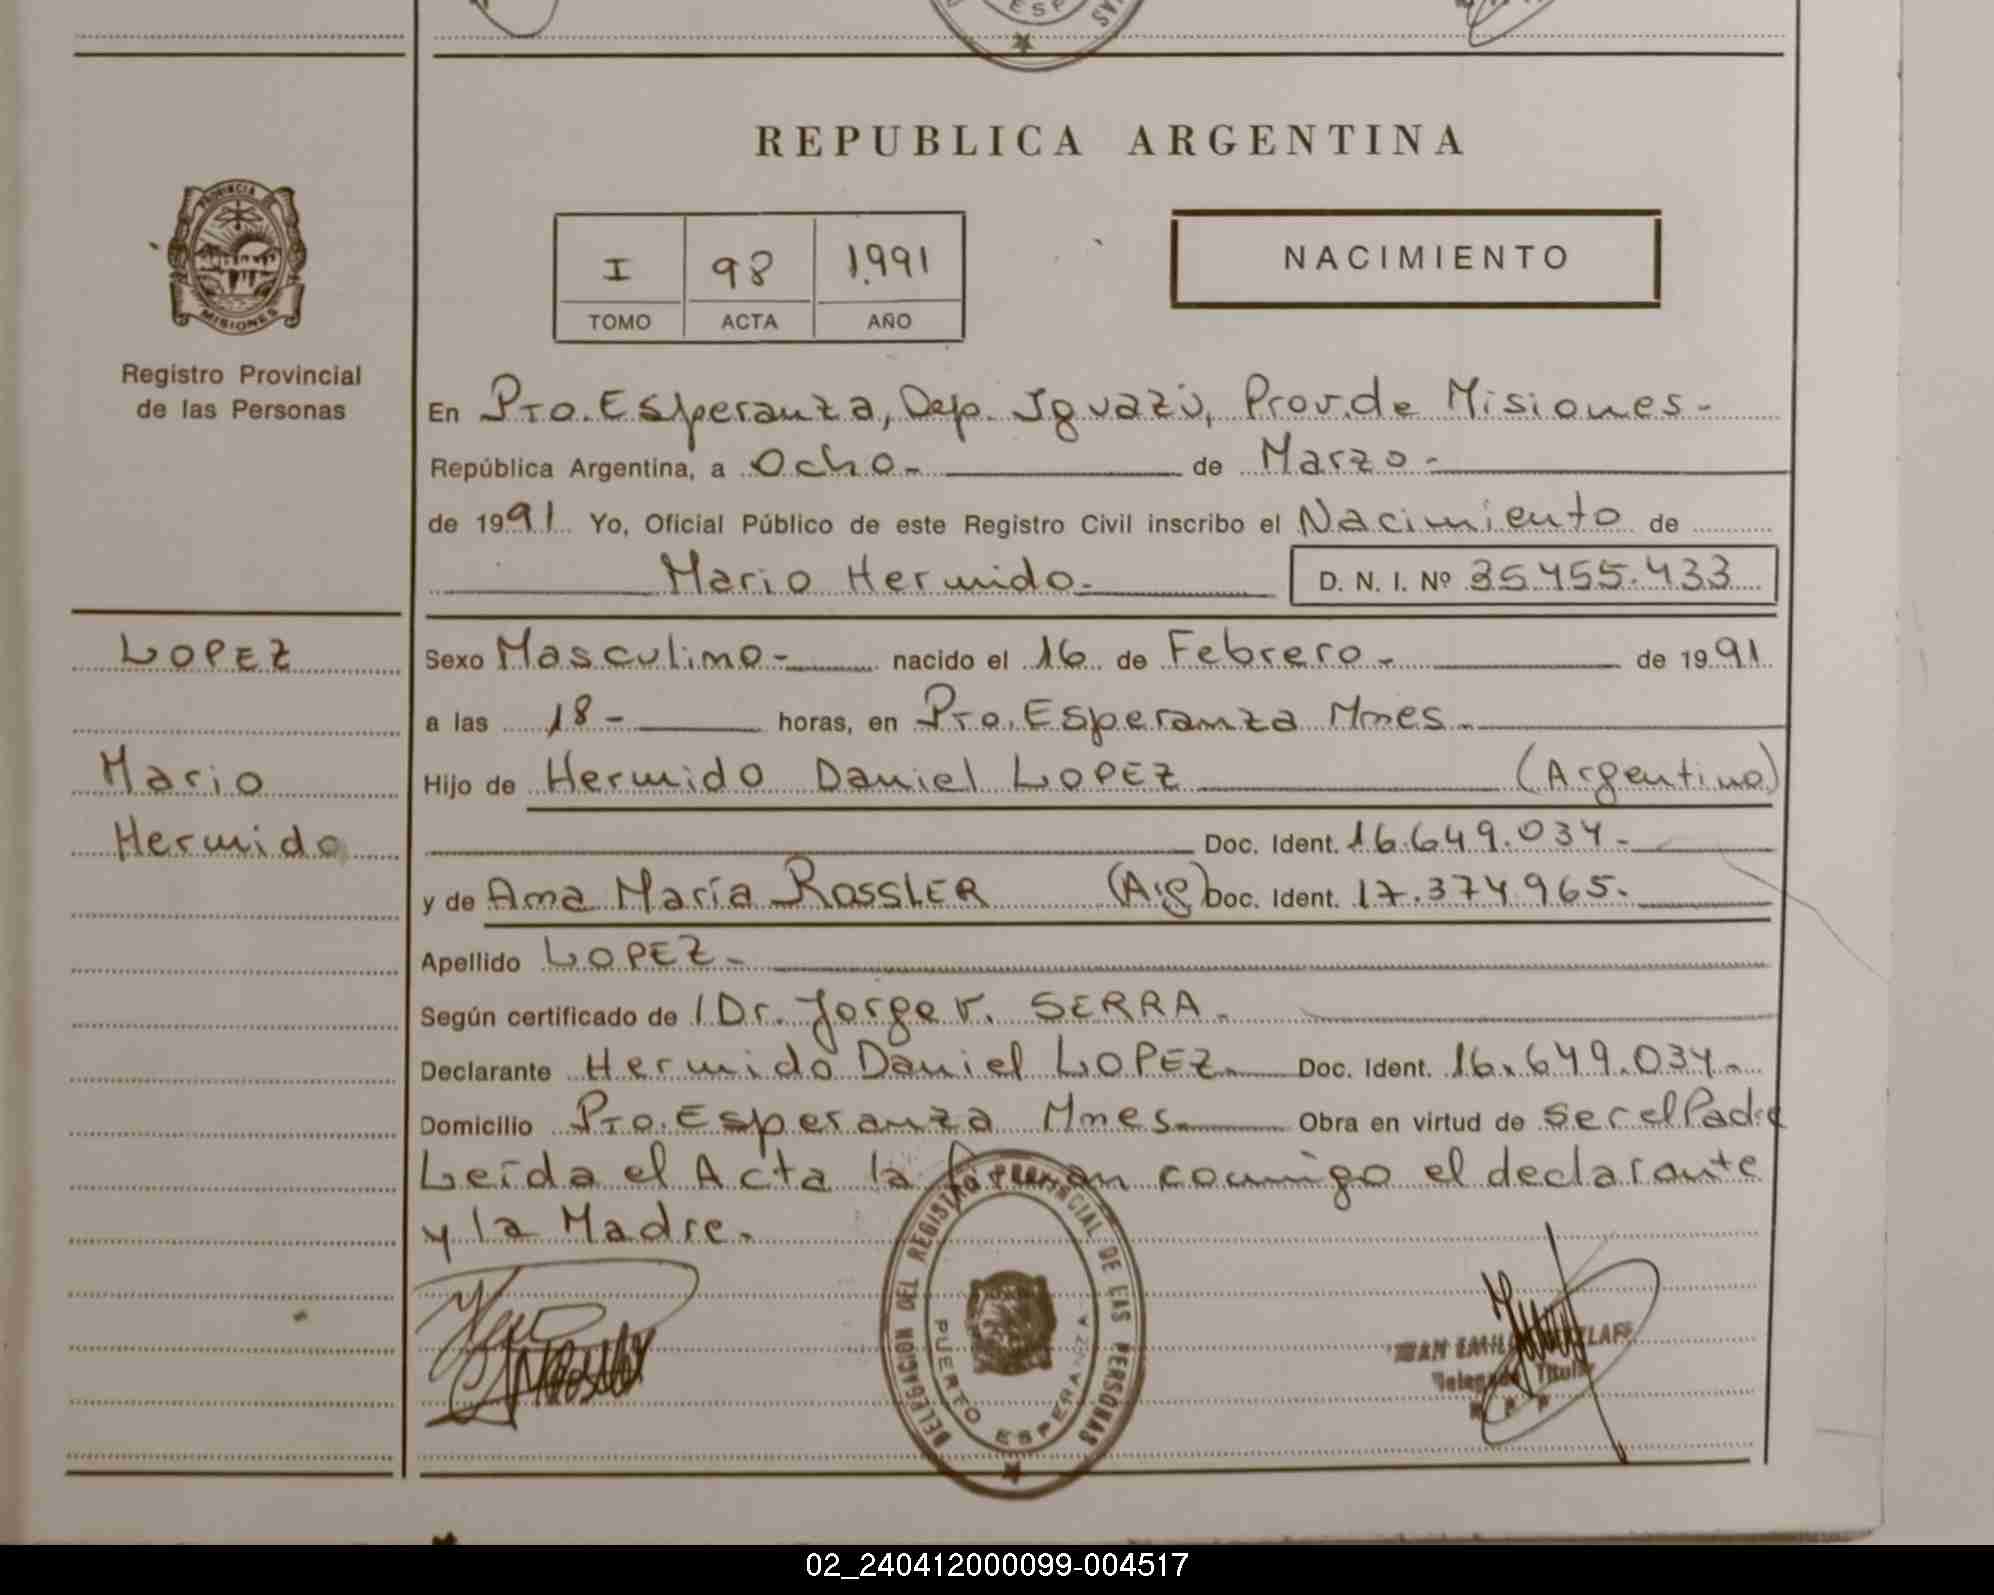 REPUBLICA ARGENTINA
PROVINCIA
MISIONES
Registro Provincial
de las Personas
I 98 1.991
TOMO ACTA AÑO
NACIMIENTO
En Pto. Esperanza, Dep. Iguazú, Prov. de Misiones-
República Argentina, a Ocho- de Marzo-
de 1991 Yo, Oficial Público de este Registro Civil inscribo el Nacimiento de
Mario Hermido- D. N. I. Nº 35.455.433
LOPEZ
Mario
Hermido
Sexo Masculino- nacido el 16 de Febrero- de 1991
a las 18- horas, en Pto. Esperanza Mnes-
Hijo de Hermido Daniel LOPEZ (Argentino)
Doc. Ident. 16.649.034-
y de Ana María ROSSLER (Arg) Doc. Ident. 17.374.965-
Apellido LOPEZ-
Según certificado de Dr. Jorge V. SERRA-
Declarante Hermido Daniel LOPEZ- Doc. Ident. 16.649.034-
Domicilio Pto. Esperanza Mnes- Obra en virtud de ser el Padre
Leída el Acta la firman conmigo el declarante
y la Madre.
DELEGACION DEL REGISTRO PROVINCIAL DE LAS PERSONAS
PUERTO ESPERANZA
Delegado Titular
02_240412000099-004517